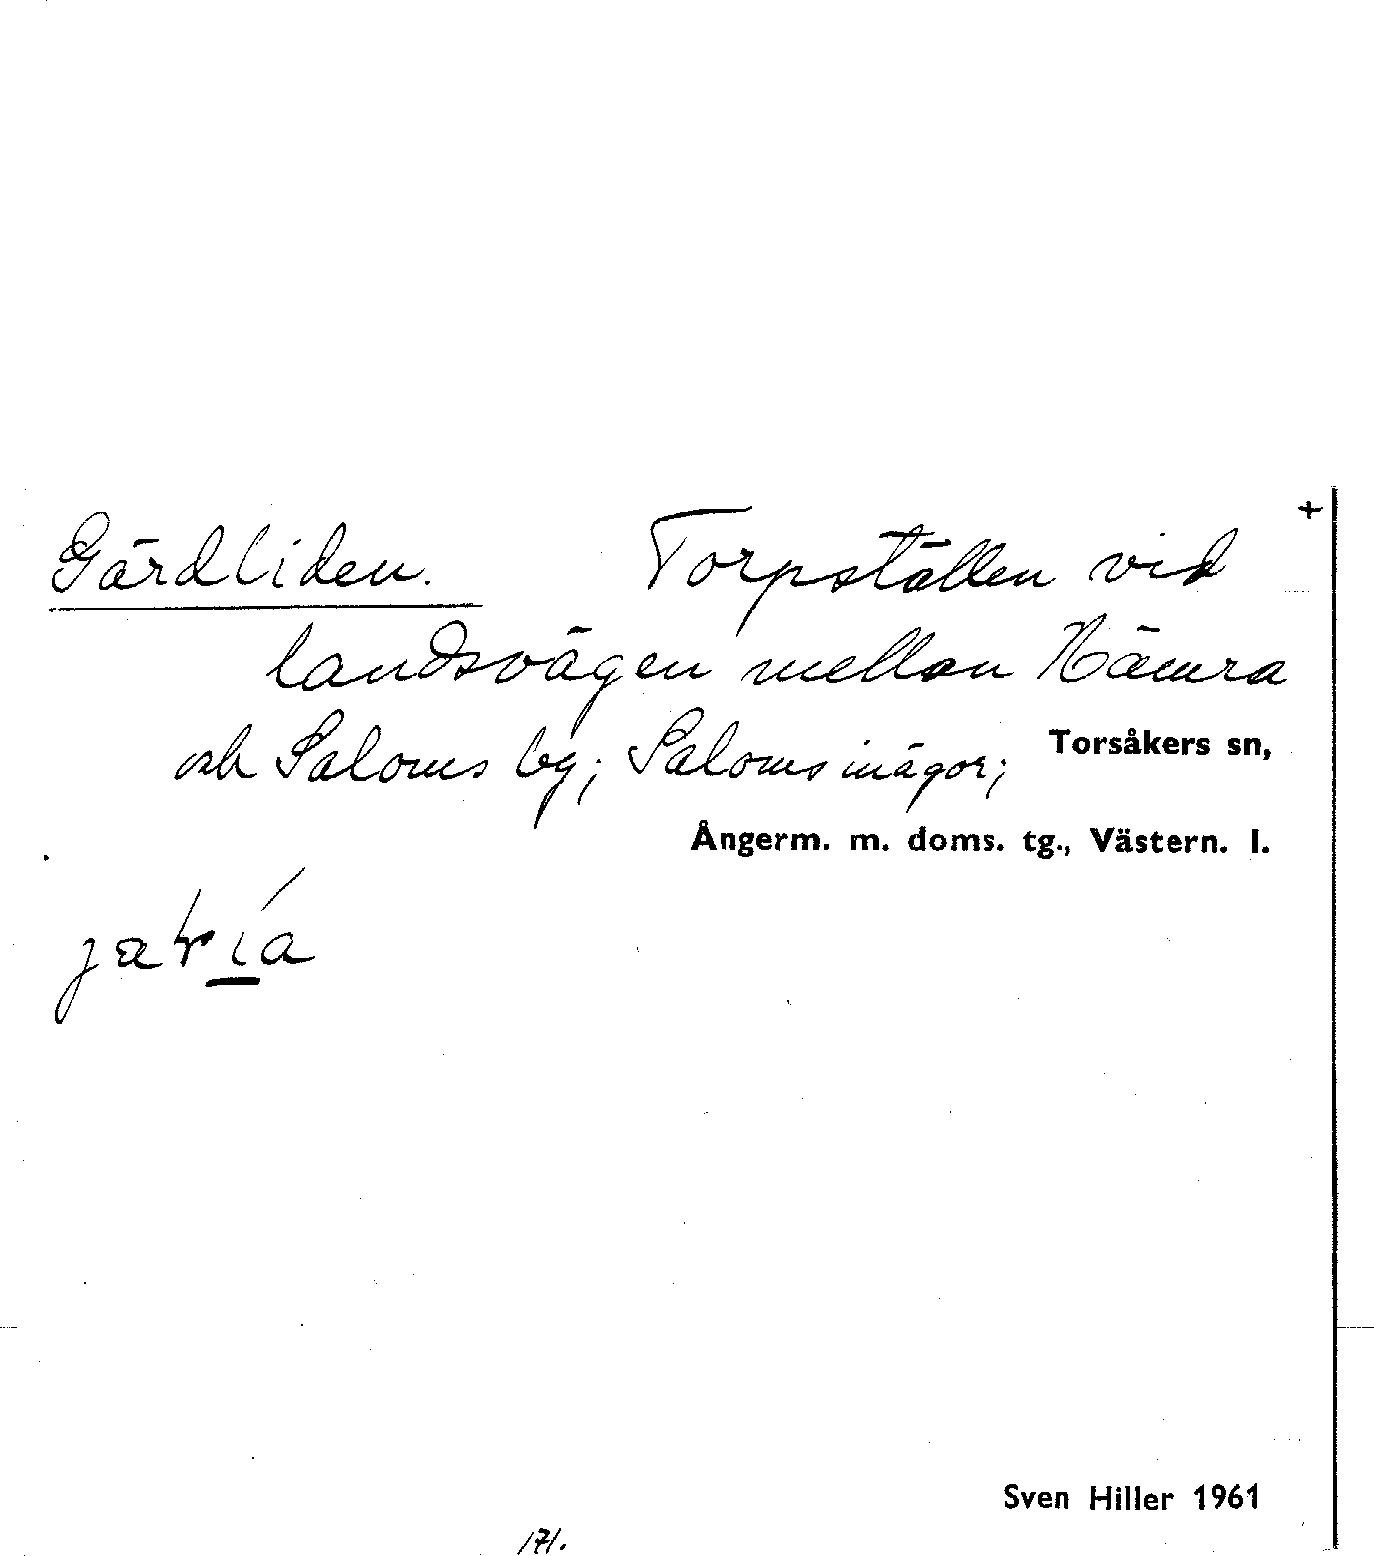 +
Gärdliden. Torpställen vid
landsvägen mellan Hämra
och Saloms by; Saloms inägor; Torsåkers sn,
Ångerm. m. doms. tg., Västern. l.
Sven Hiller 1961
171.